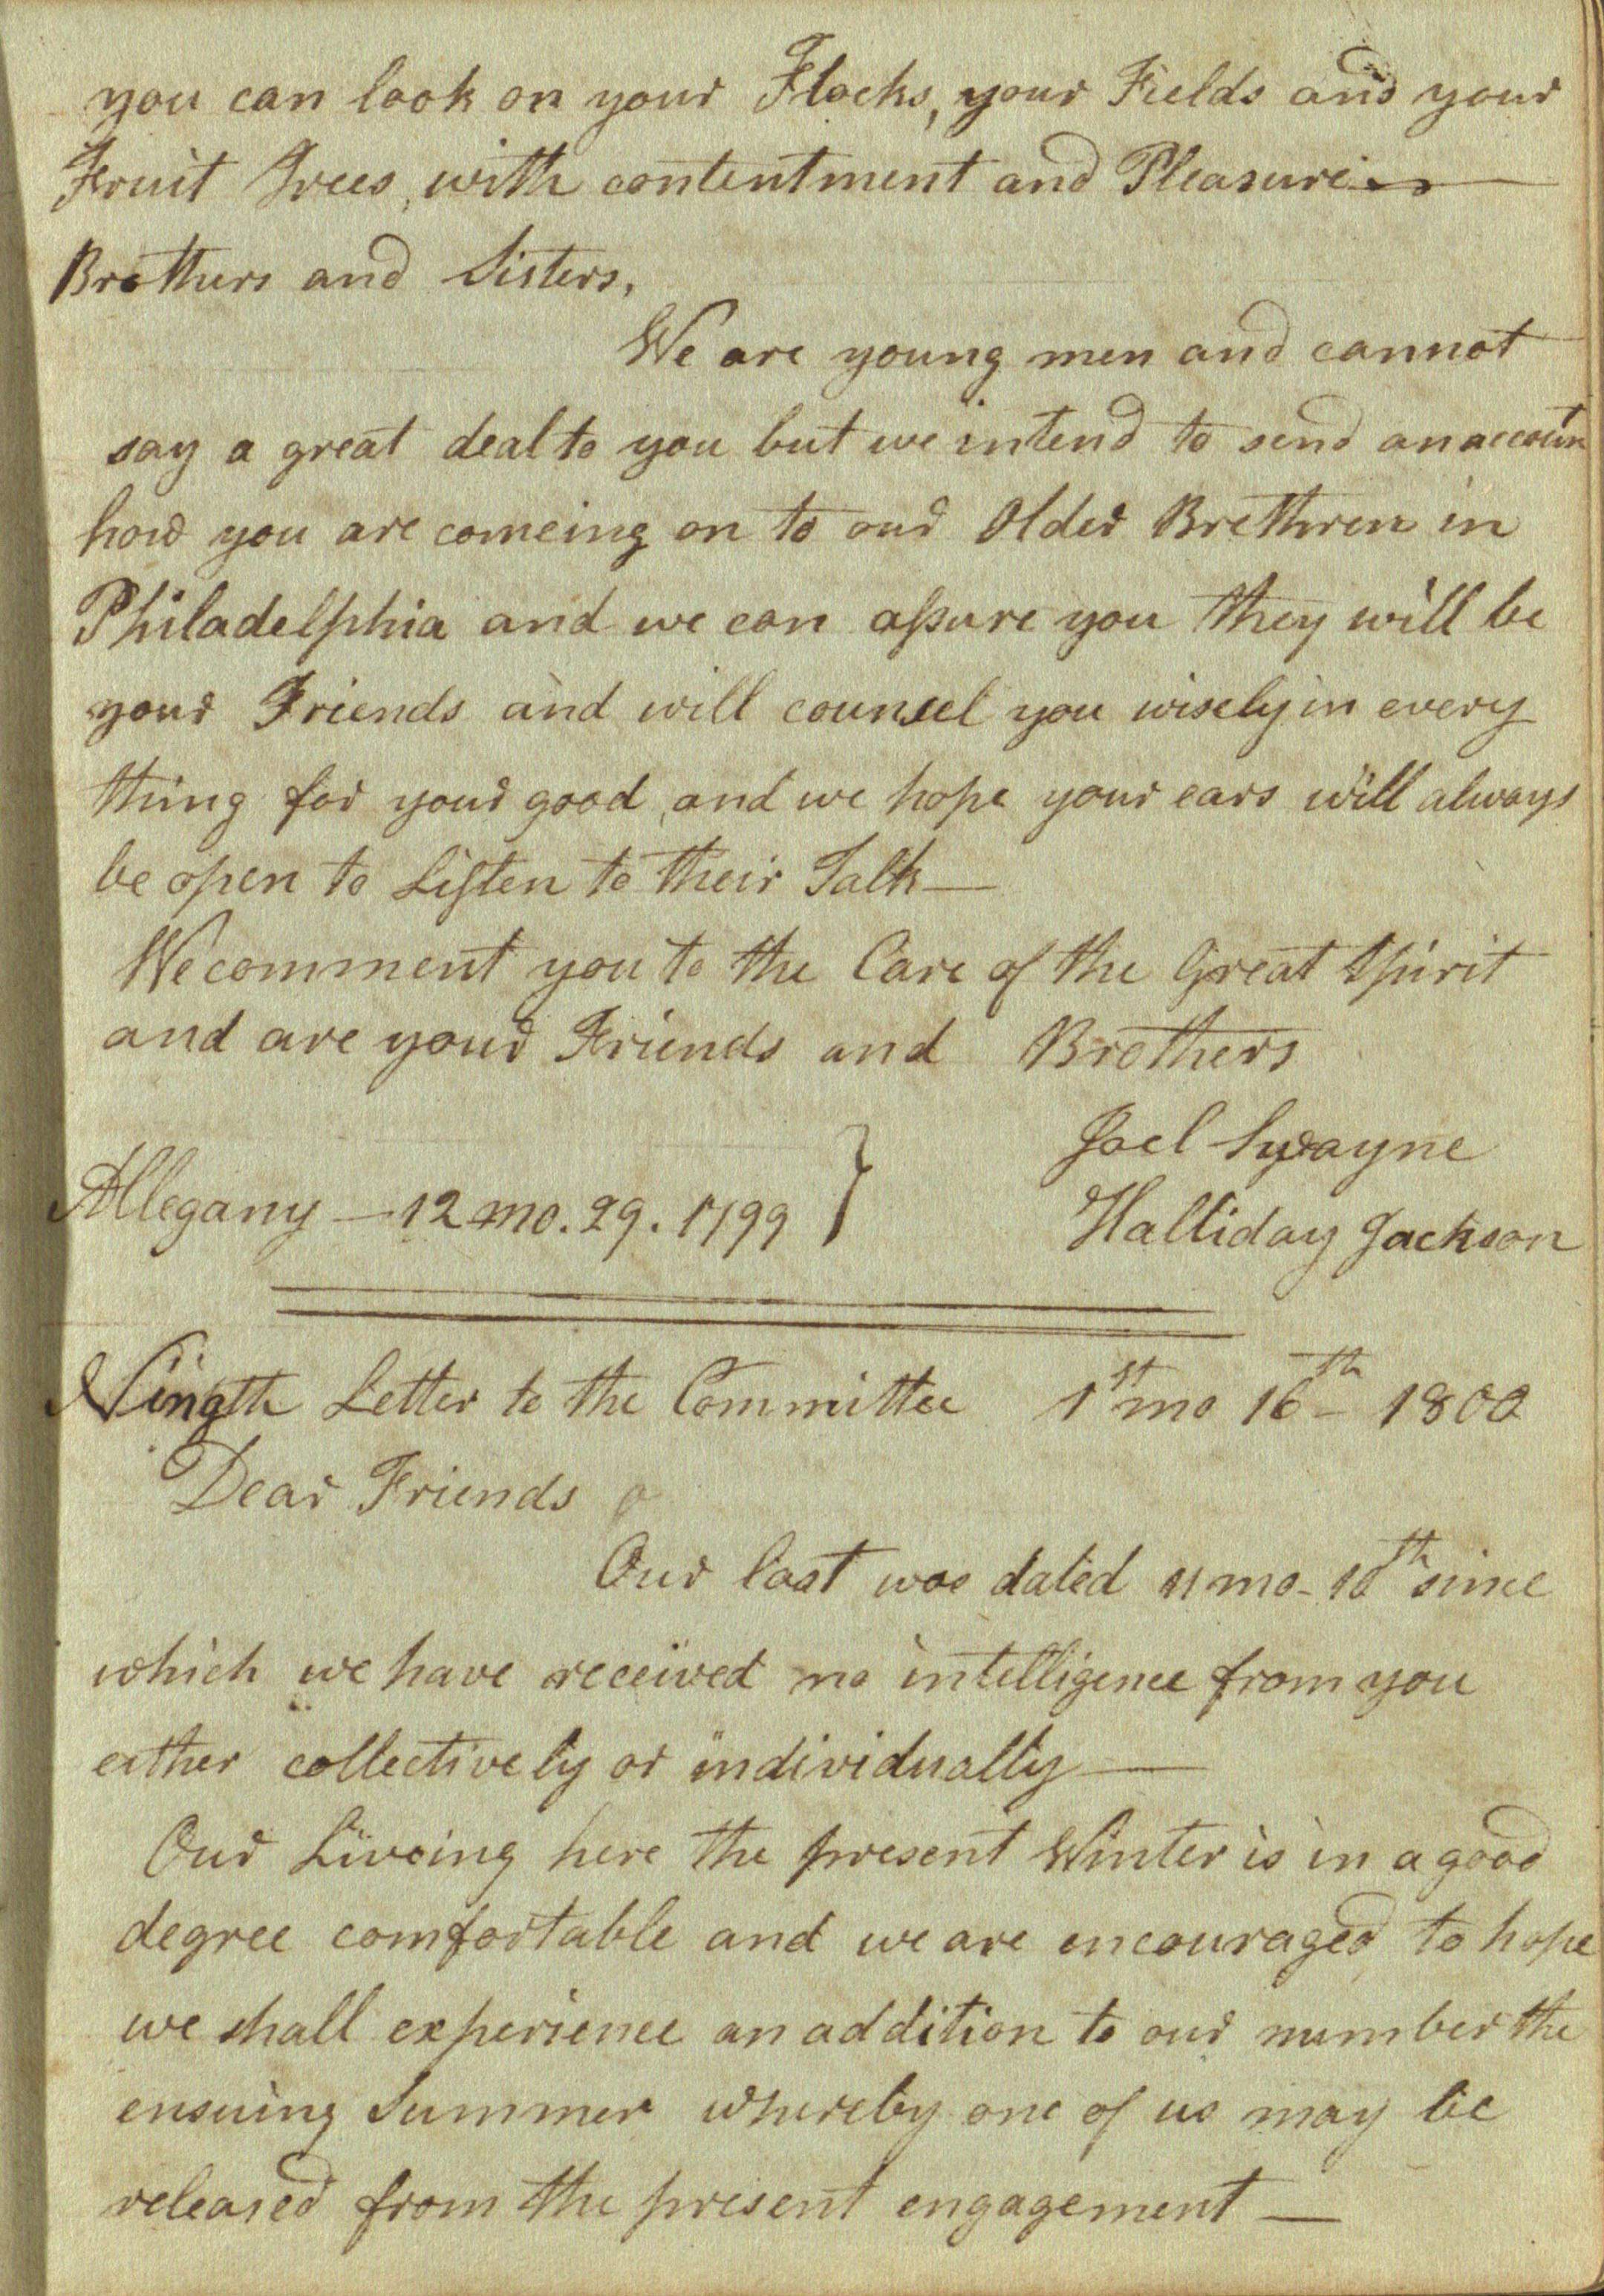 you can look on your Flocks, your Fields and your
Fruit Trees, with contentment and Pleasure —
Brothers and Sisters,
We are young men and cannot
say a great deal to you but we intend to send an accoun
how you are comeing on to our Older Brethren in
Philadelphia and we can aſsure you they will be
your Friends and will counsel you wisely in every
thing for your good, and we hope your ears will always
be open to Liſten to their Talk —
We comment you to the Care of the Great Spirit
and are your Friends and Brothers
Joel Swayne
Allegany — 12 mo. 29. 1799 }
Halliday Jackson
Ningth Letter to the Committee 1st mo 16th - 1800
Dear Friends
Our last was dated 11 mo - 10th since
which we have received no intelligence from you
either collectively or individually —
Our Liveing here the present Winter is in a good
degree comfortable and we are encouraged to hope
we shall experience an addition to our number the
ensuing Summer whereby one of us may be
released from the present engagement —